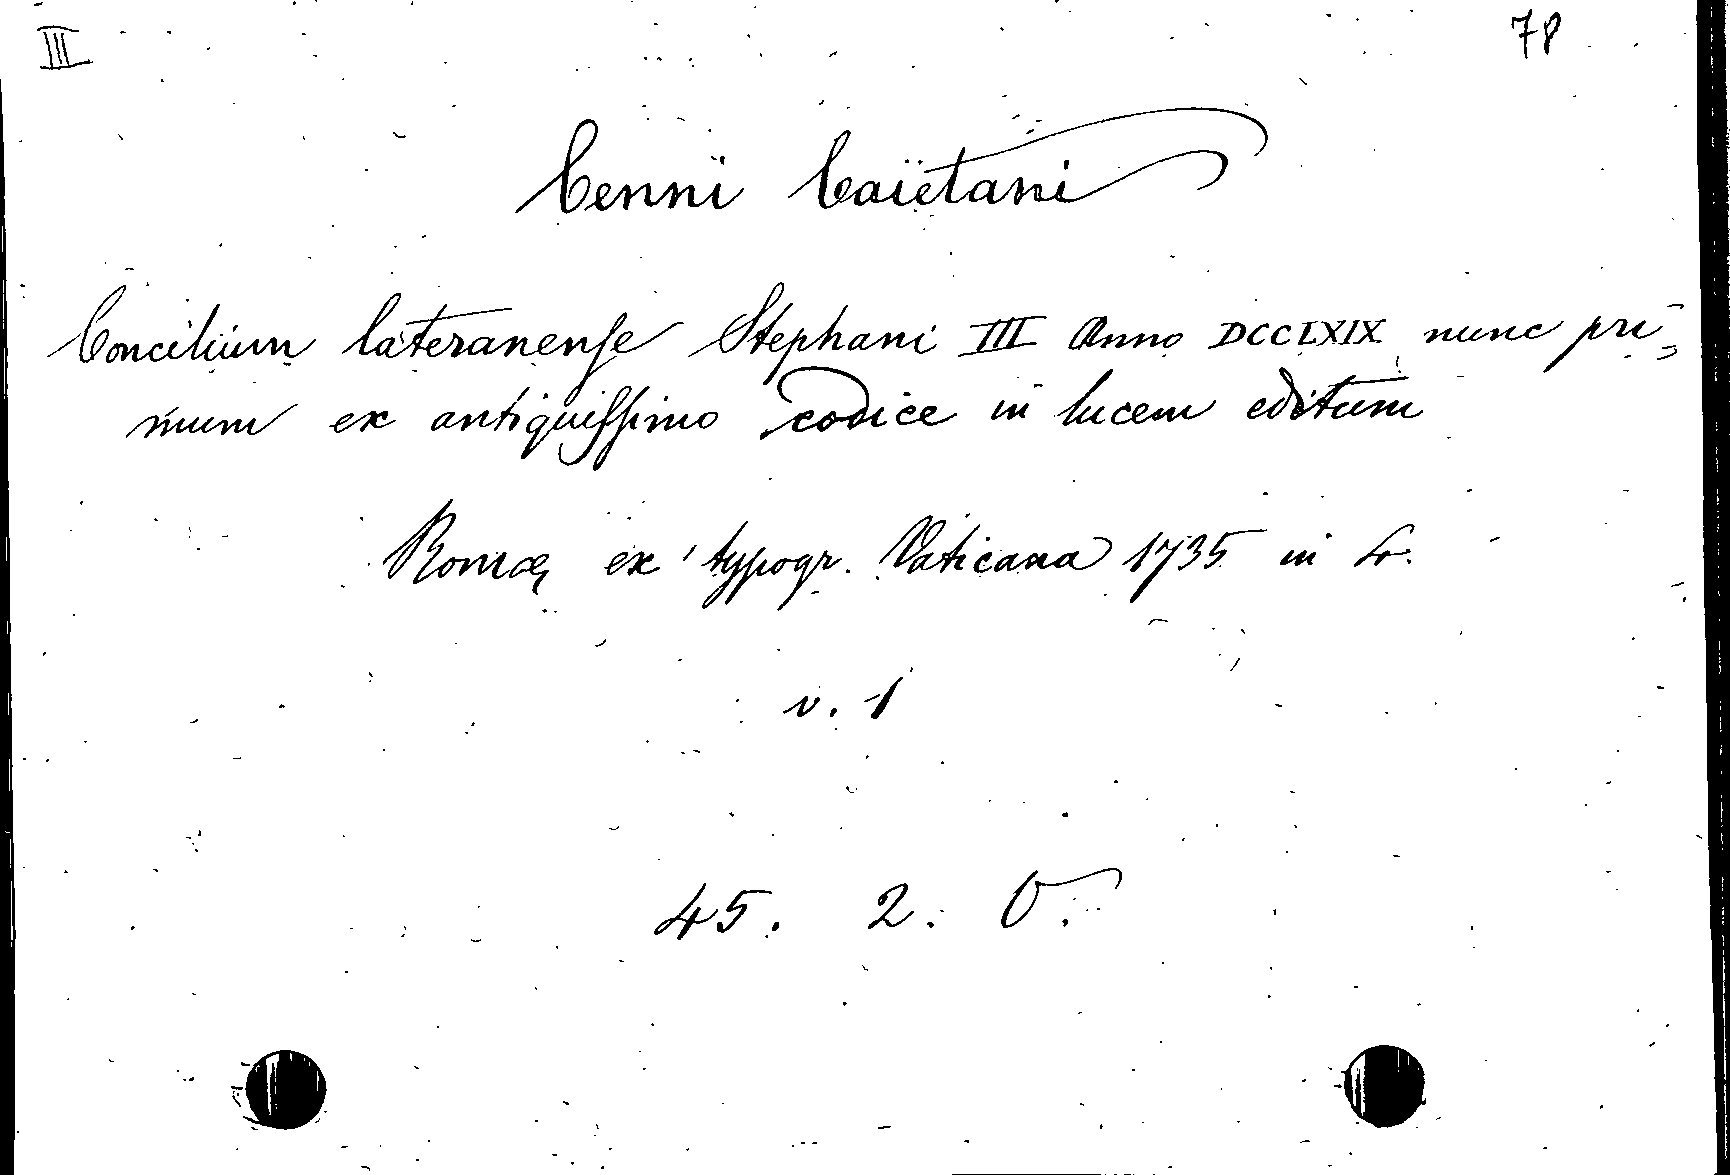 III 78
Cenni Caietani
Concilium lateranense Stephani III Anno DCCLXIX nunc pri=
mum ex antiquissimo codice in lucem editum
Romæ ex typogr. Vaticana 1735 in 4.
v. 1
45. 2. O.